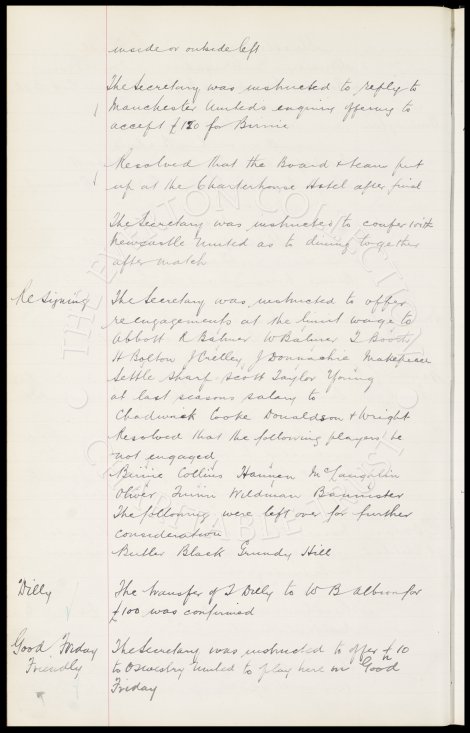 inside or outside left
The Secretary was instructed to reply to
Manchester Uniteds enquiry offering to
accept £120 for Birnie
Resolved that the Board & team put
up at the Charterhouse Hotel after final
The Secretary was instructed to confer with
Newcastle United as to dining together
after match
Re Signing The Secretary was instructed to offer
reengagements at the limit wage to
Abbott R Balmer W Balmer T Booth
H Bolton J Crelley J Donnachie Makepeace
Settle Sharp Scott Taylor Young
at last seasons salary to
Chadwick Cooke Donaldson & Wright
Resolved that the following players be
not engaged
Birnie Collins Hannen McLaughlin
Oliver Wildman Bannister
The following were left over for further
consideration
Butler Black Grundy Hill
Dilly The transfer of T Dilly to W B Albion for
£100 was confirmed
Good Friday The Secretary was instructed to offer £10
Friendly to Oswestry United to play here on Good
Friday
THE EVERTON COLLECTION
CHARITABLE TRUST